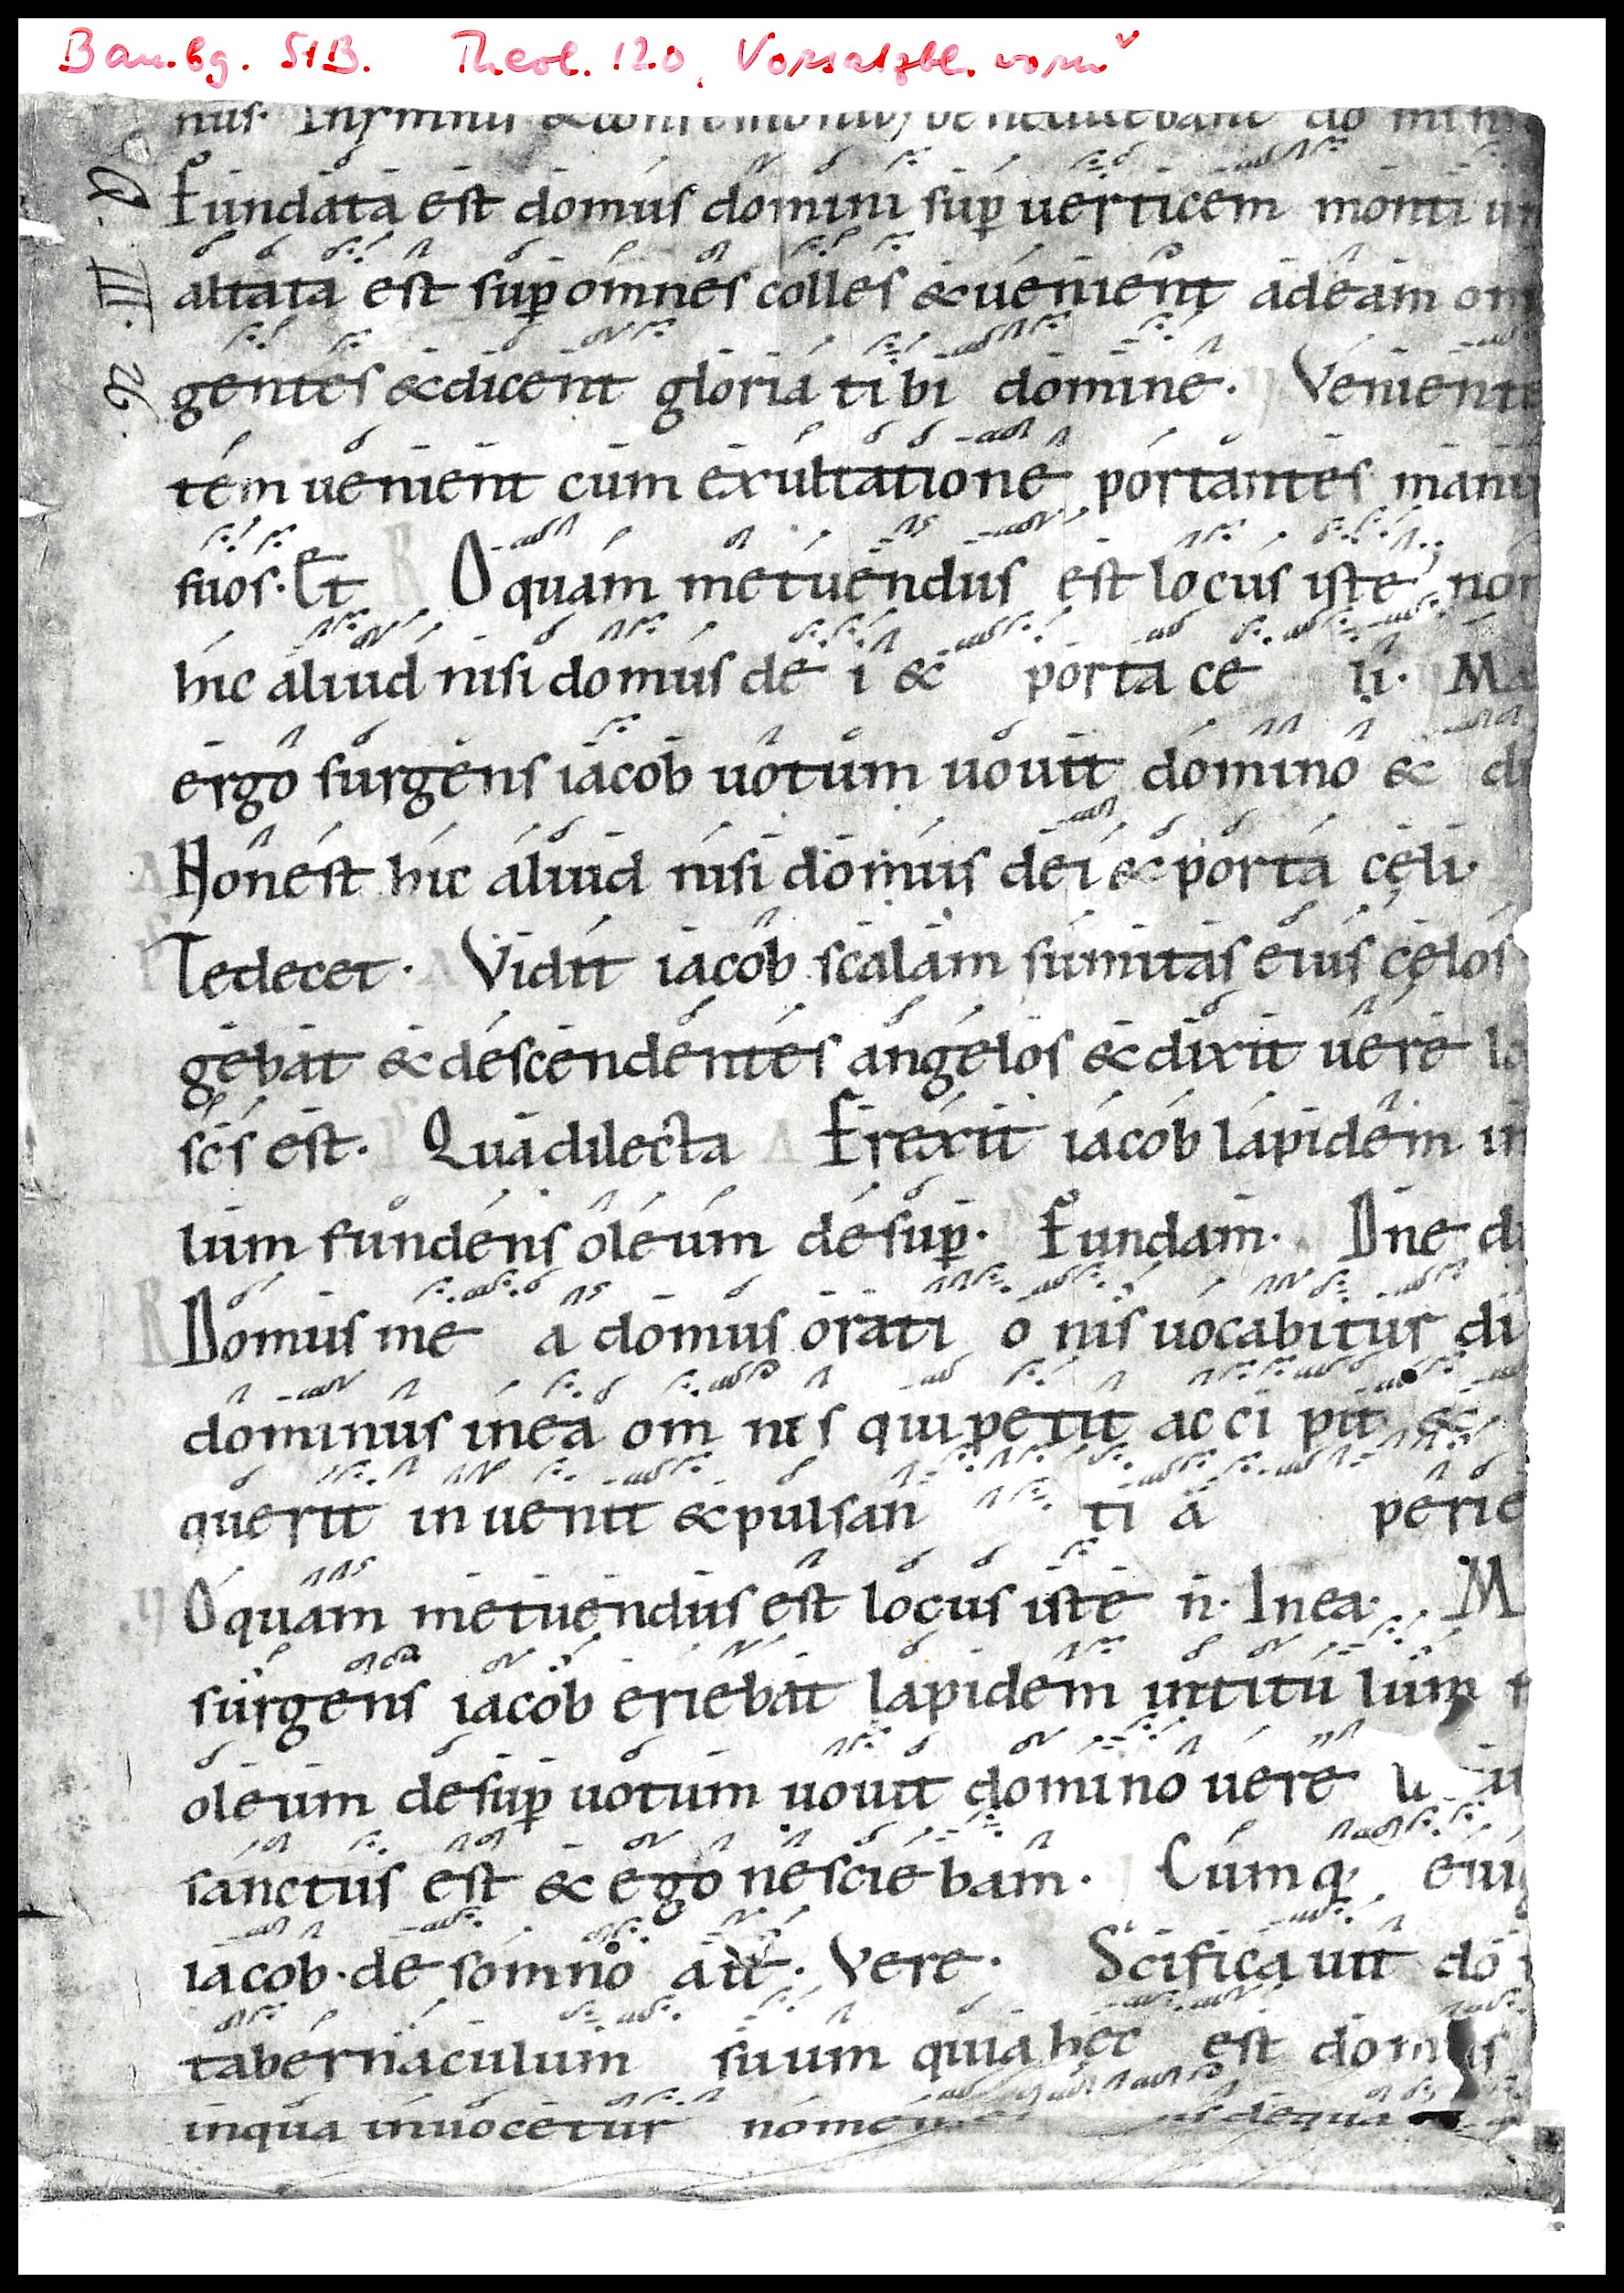 Bambg. StB. Theol. 120, Vorsatzbl. vorn v
nus. Inymnis & confessionib; benedicebant do min
Q. III. N.
Fundata est domus domini sup verticem montiu
altata est sup omnes colles & uenient adeam om
gentes & dicent gloria tibi domine. Veniente
tem uenient cum exultatione portantes manip
suos. Et R O quam metuendus est locus iste non
hic aliud nisi domus de i & porta ce li. Ma
ergo surgens iacob uotum uouit domino & di
Non est hic aliud nisi domus dei & porta cęli.
Te decet. Vidit iacob scalam sumitas eius cęlos
gebat & descendentes angelos & dixit uere lo
scs est. Qua dilecta Erexit iacob lapidem in
lum fundens oleum desup. Fundam. Dne di
R Domus me a domus orati o nis uocabitur di
dominus in ea om nis qui petit ac ci pit &
querit in uenit & pulsan ti a perie
V O quam metuendus est locus iste n. In ea. M
surgens iacob eriebat lapidem in titu lum
oleum desup uotum uouit domino uere
sanctus est & ego nesciebam. Cumq; euig
iacob. de somno ait. Vere. Scificauit do
tabernaculum suum quia hec est domus
in qua inuocetur nomen de qua